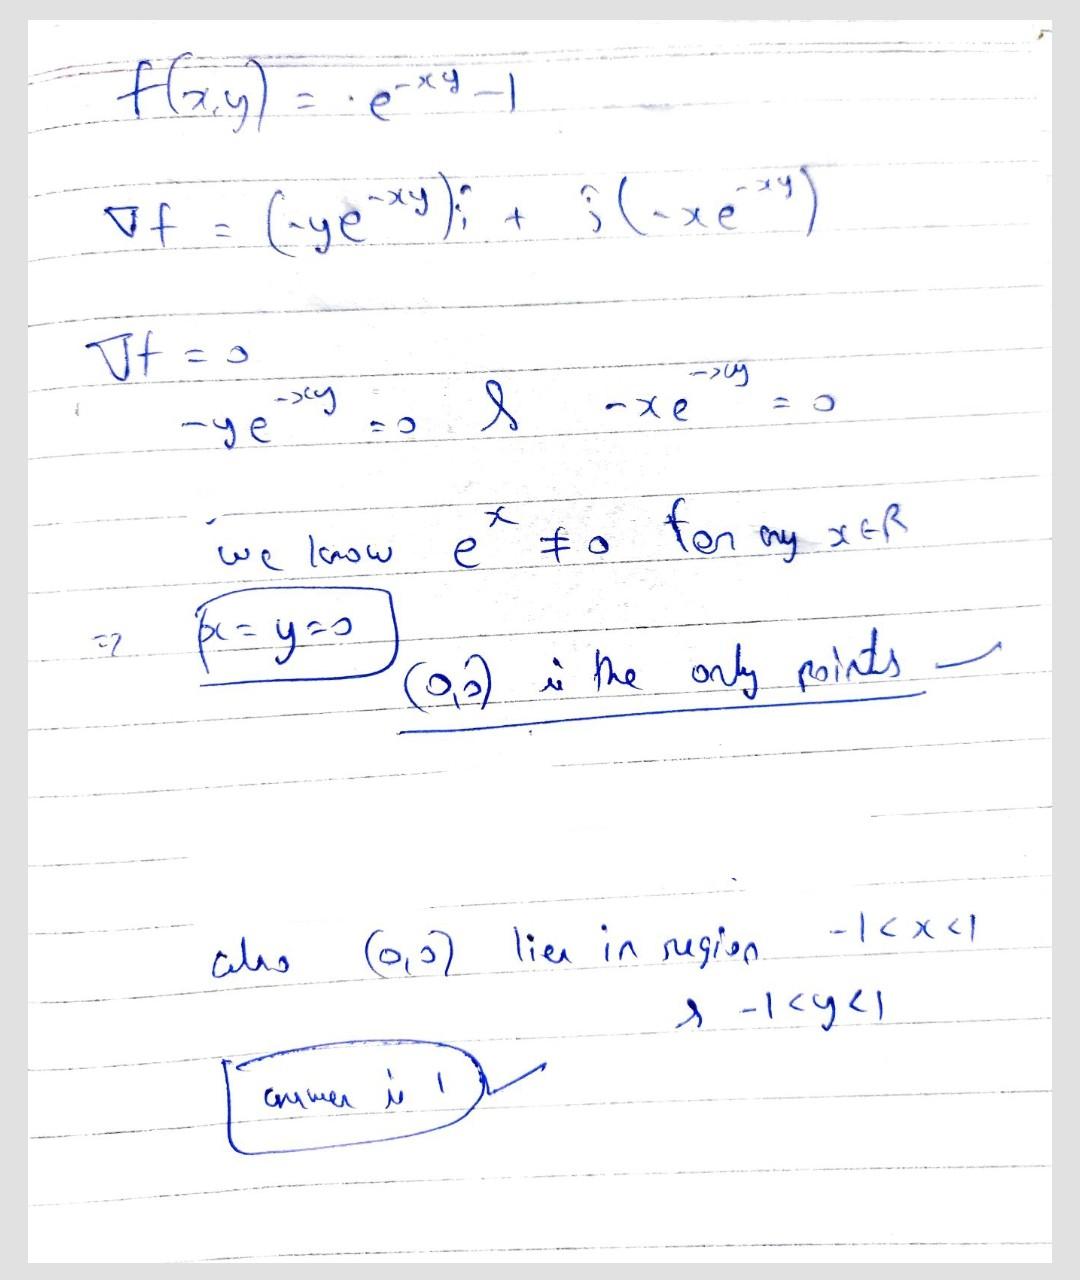 f(x,y) = e^{-xy} - 1
∇f = (-ye^{-xy})î + ĵ(-xe^{-xy})
∇f = 0
-ye^{-xy} = 0 & -xe^{-xy} = 0
we know e^x ≠ 0 for any x∈R
=> x = y = 0
(0,0) is the only points
also (0,0) lies in region -1<x<1
& -1<y<1
answer is 1